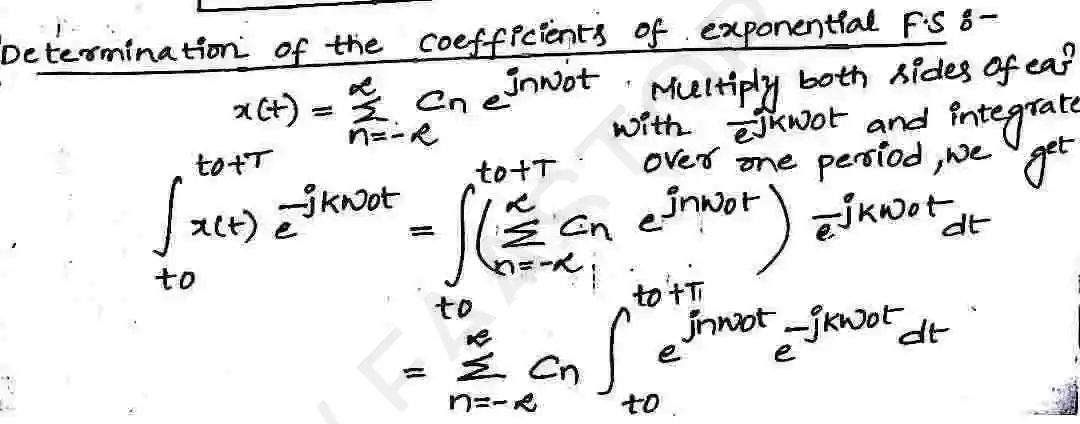 Determination of the coefficients of exponential F.S :-
x(t) = ∑_{n=-∞}^{∞} Cn e^{jnω0t} . Multiply both sides of ear
with e^{-jkω0t} and integrate
over one period, we get
∫_{t0}^{t0+T} x(t) e^{-jkω0t} = ∫_{t0}^{t0+T} ( ∑_{n=-∞}^{∞} Cn e^{jnω0t} ) e^{-jkω0t} dt
= ∑_{n=-∞}^{∞} Cn ∫_{t0}^{t0+T} e^{jnω0t} e^{-jkω0t} dt